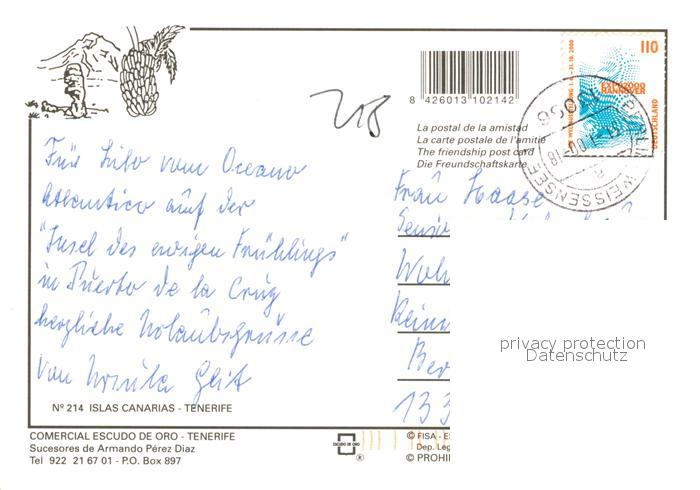 110
EXPO2000
HANNOVER
DEUTSCHLAND
8 426013 102142
La postal de la amistad
La carte postale de l'amitié
The friendship post card
Die Freundschaftskarte
WEISSENSEE
Frau Haase
Für Lilo vom Oceano
Atlantico auf der
"Insel des ewigen Frühlings"
in Puerto de la Cruz
herzliche Urlaubsgrüsse
von Ursula Geit
Woh
Ber
133
privacy protection
Datenschutz
Nº 214 ISLAS CANARIAS - TENERIFE
COMERCIAL ESCUDO DE ORO - TENERIFE
Sucesores de Armando Pérez Diaz
Tel 922 21 67 01 - P.O. Box 897
ESCUDO DE ORO
®
© FISA - ES
Dep. Leg
© PROHIB